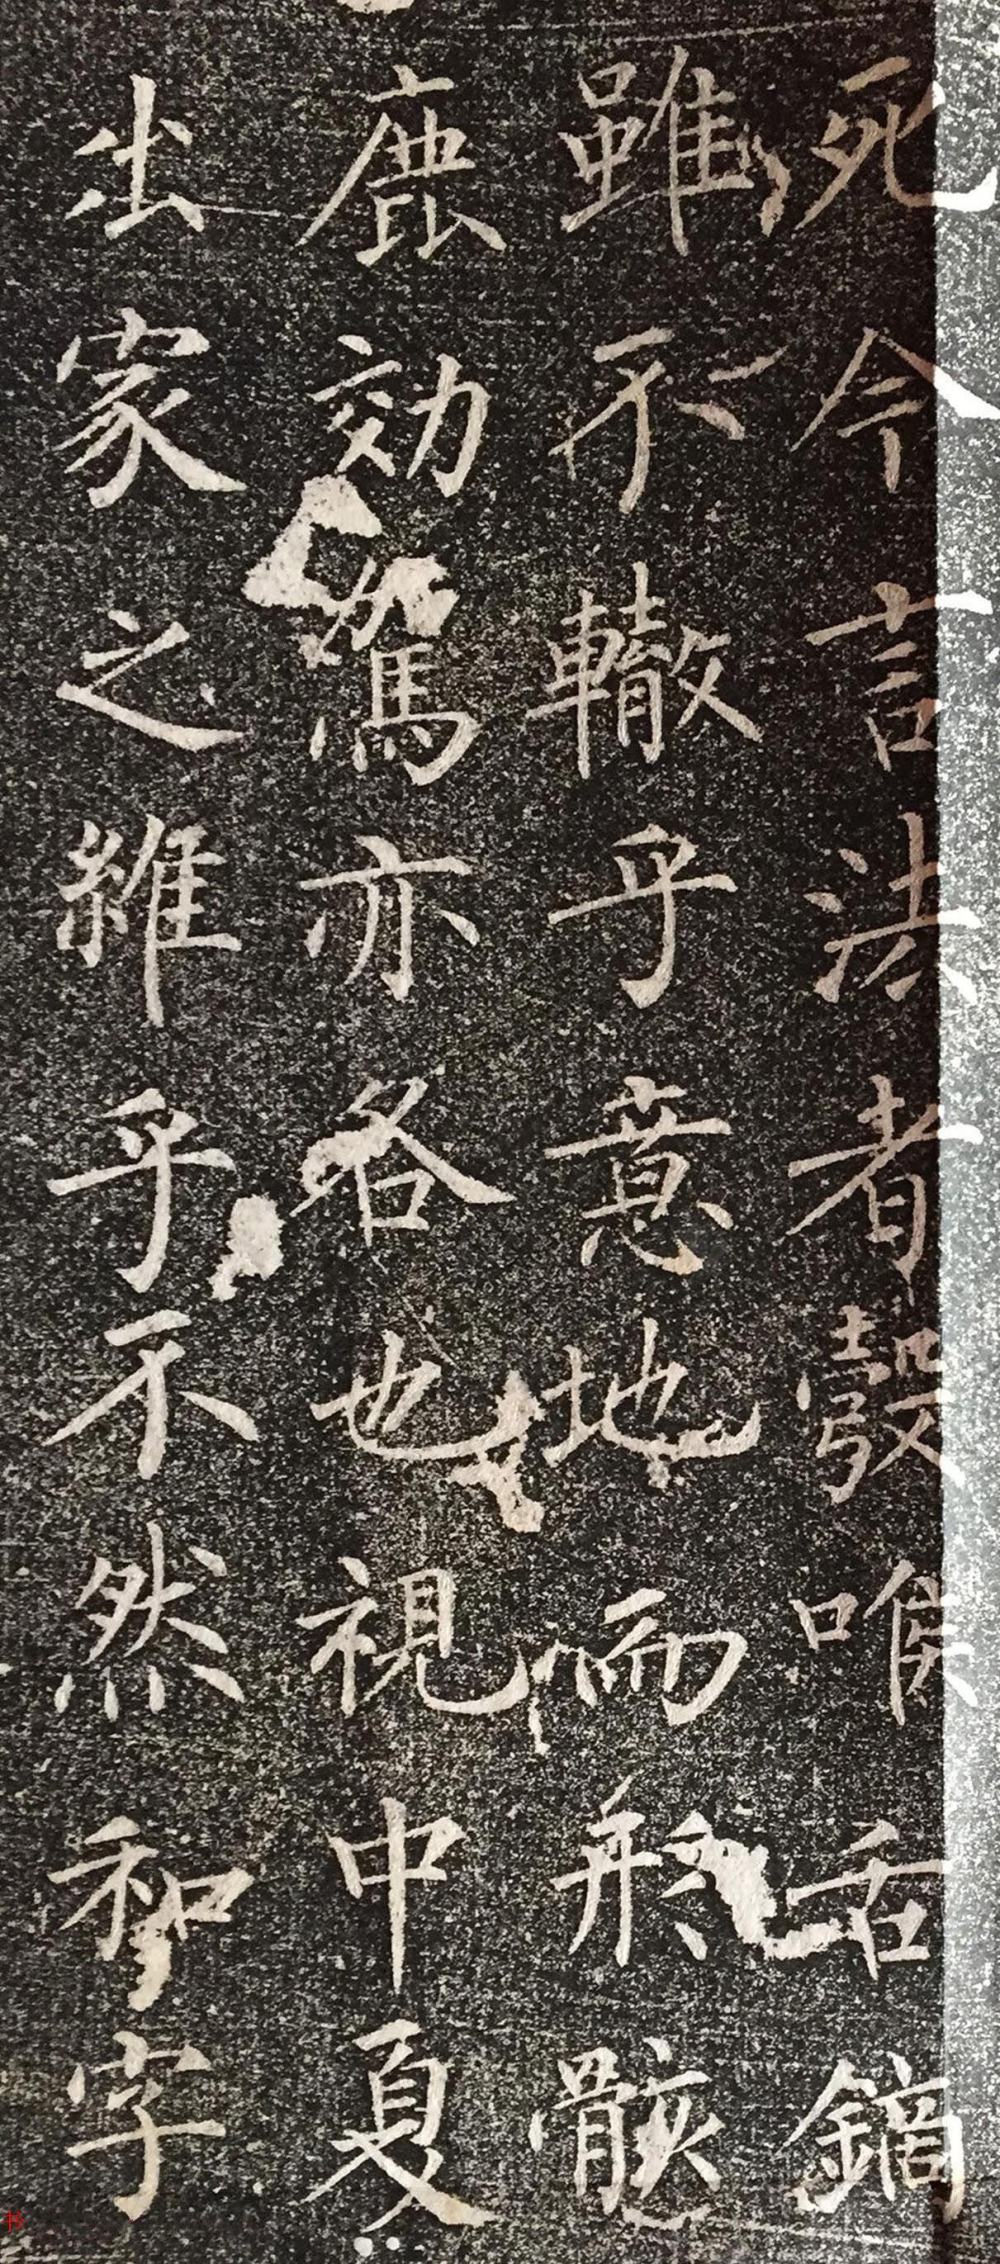 死今言法者彀喉舌鏑
雖不轍乎意地而形骸
鹿効駕亦各也視中夏
出家之維乎不然和字
书